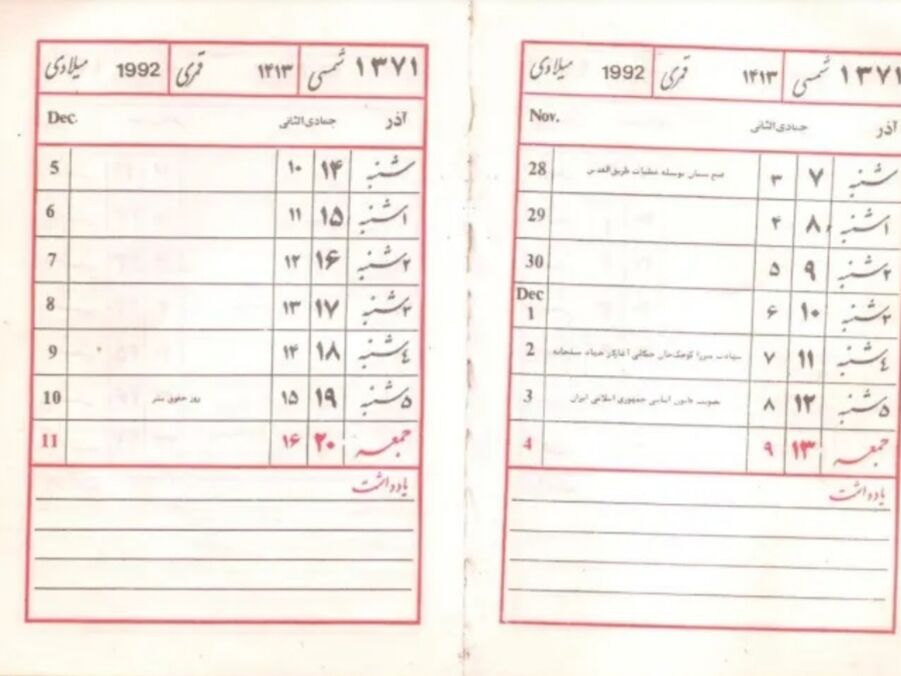 ۱۳۷۱ شمسی ۱۴۱۳ قمری 1992 میلادی
آذر جمادی‌الثانی Nov.
شنبه ۷ ۳ فتح بستان بوسیله عملیات طریق‌القدس 28
۱شنبه ۸ ۴ 29
۲شنبه ۹ ۵ 30
۳شنبه ۱۰ ۶ Dec 1
۴شنبه ۱۱ ۷ شهادت میرزا کوچک‌خان جنگلی آغازگر جهاد مسلحانه 2
۵شنبه ۱۲ ۸ تصویب قانون اساسی جمهوری اسلامی ایران 3
جمعه ۱۳ ۹ 4
یادداشت
۱۳۷۱ شمسی ۱۴۱۳ قمری 1992 میلادی
آذر جمادی‌الثانی Dec.
شنبه ۱۴ ۱۰ 5
۱شنبه ۱۵ ۱۱ 6
۲شنبه ۱۶ ۱۲ 7
۳شنبه ۱۷ ۱۳ 8
۴شنبه ۱۸ ۱۴ 9
۵شنبه ۱۹ ۱۵ روز حقوق بشر 10
جمعه ۲۰ ۱۶ 11
یادداشت